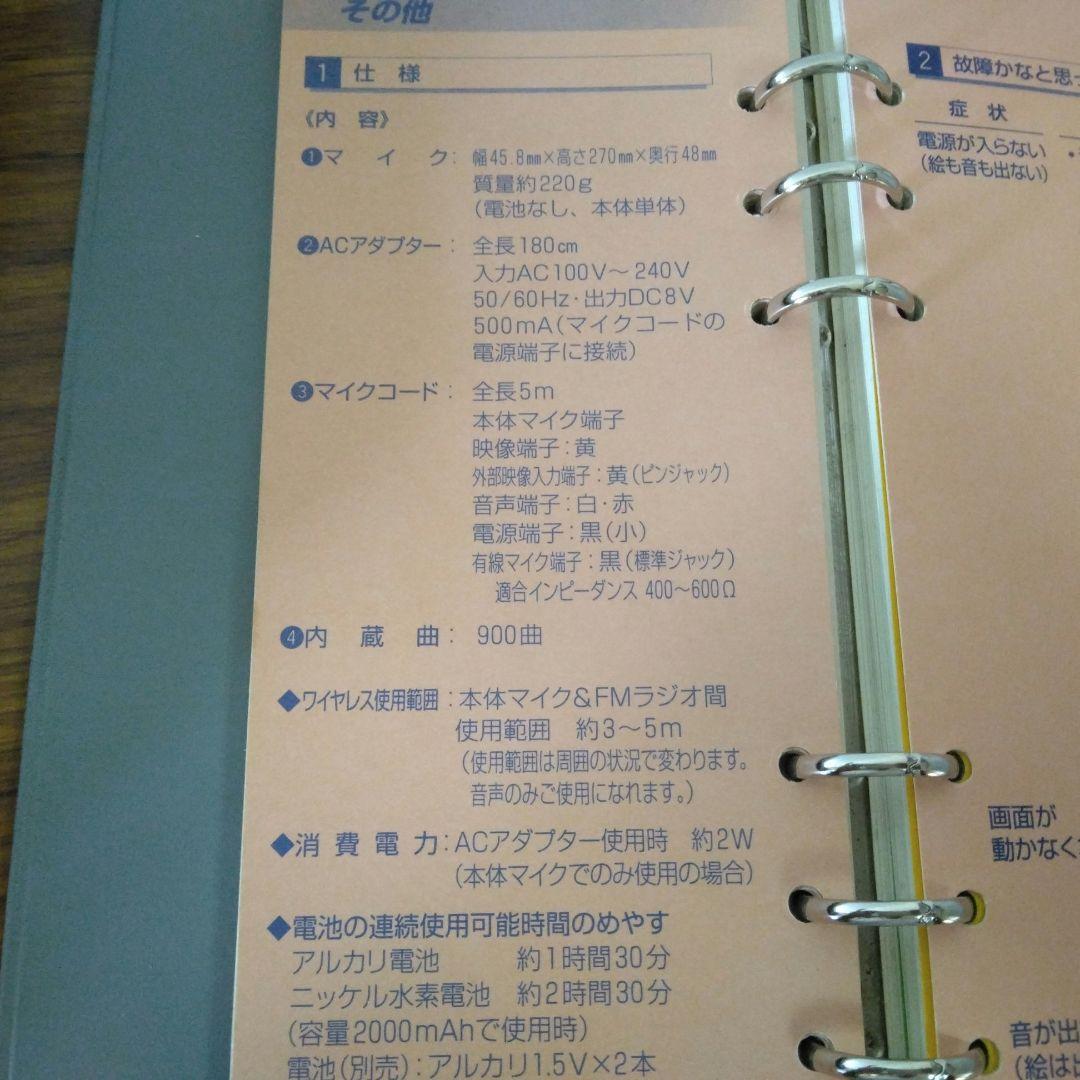 その他
1 仕様
《内容》
❶マイク: 幅45.8㎜×高さ270㎜×奥行48㎜
質量約220g
(電池なし、本体単体)
❷ACアダプター: 全長180㎝
入力AC100V～240V
50/60Hz・出力DC8V
500mA(マイクコードの
電源端子に接続)
❸マイクコード: 全長5m
本体マイク端子
映像端子:黄
外部映像入力端子:黄(ピンジャック)
音声端子:白・赤
電源端子:黒(小)
有線マイク端子:黒(標準ジャック)
適合インピーダンス 400～600Ω
❹内蔵曲: 900曲
◆ワイヤレス使用範囲:本体マイク&FMラジオ間
使用範囲 約3～5m
(使用範囲は周囲の状況で変わります。
音声のみご使用になれます。)
◆消費電力:ACアダプター使用時 約2W
(本体マイクでのみ使用の場合)
◆電池の連続使用可能時間のめやす
アルカリ電池 約1時間30分
ニッケル水素電池 約2時間30分
(容量2000mAhで使用時)
電池(別売):アルカリ1.5V×2本
2 故障かなと思っ
症状
電源が入らない
(絵も音も出ない)
画面が
動かなく
音が出
(絵は出